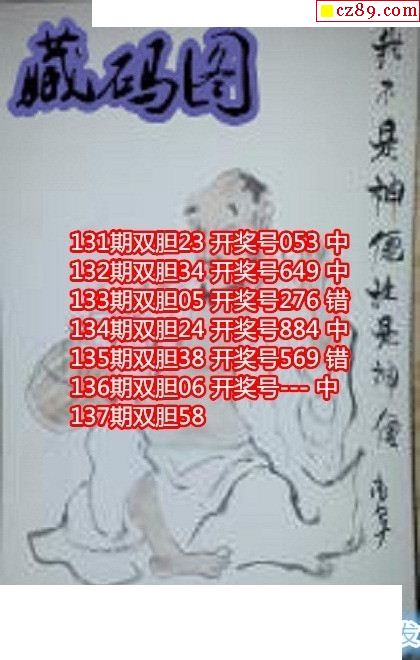 cz89.com
藏码图
131期双胆23 开奖号053 中
132期双胆34 开奖号649 中
133期双胆05 开奖号276 错
134期双胆24 开奖号884 中
135期双胆38 开奖号569 错
136期双胆06 开奖号--- 中
137期双胆58
我不是神仙却是神仙
发